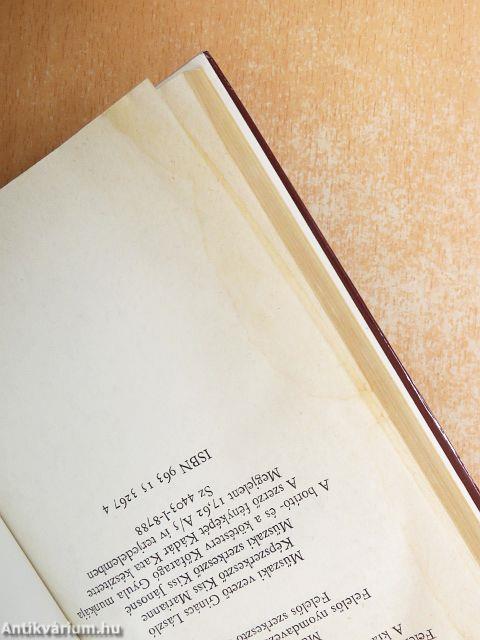 A kia
Felelős
Felelős szerkesztő
Felelős nyomdavezető
Műszaki vezető Gináćs László
Képszerkesztő Kiss Marianne
Műszaki szerkesztő Kiss Jánosné
A borító- és a kötésterv Kőfaragó Gyula munkája
A szerző fényképét Kádár Kata készítette
Megjelent 17,62 A/5 ív terjedelemben
Sz 4403-I-8788
ISBN 963 15 3267 4
Antikvárium.hu